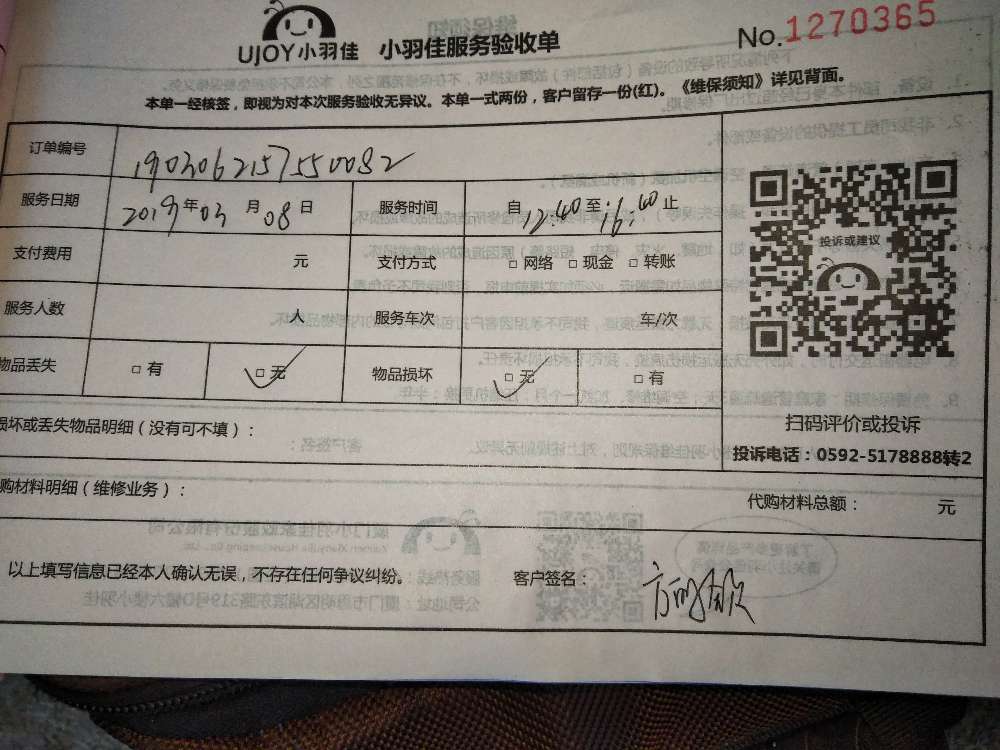 UJOY小羽佳 小羽佳服务验收单 No.1270365
本单一经核签，即视为对本次服务验收无异议。本单一式两份，客户留存一份(红)。《维保须知》详见背面。
订单编号 1903062157550082
服务日期 2019年03月08日 服务时间 自12:40至16:40止
支付费用 元 支付方式 □网络 □现金 □转账
投诉或建议
服务人数 人 服务车次 车/次
物品丢失 □有 □无 物品损坏 □无 □有
扫码评价或投诉
损坏或丢失物品明细（没有可不填）：
投诉电话：0592-5178888转2
购材料明细（维修业务）： 代购材料总额： 元
以上填写信息已经本人确认无误，不存在任何争议纠纷。 客户签名：